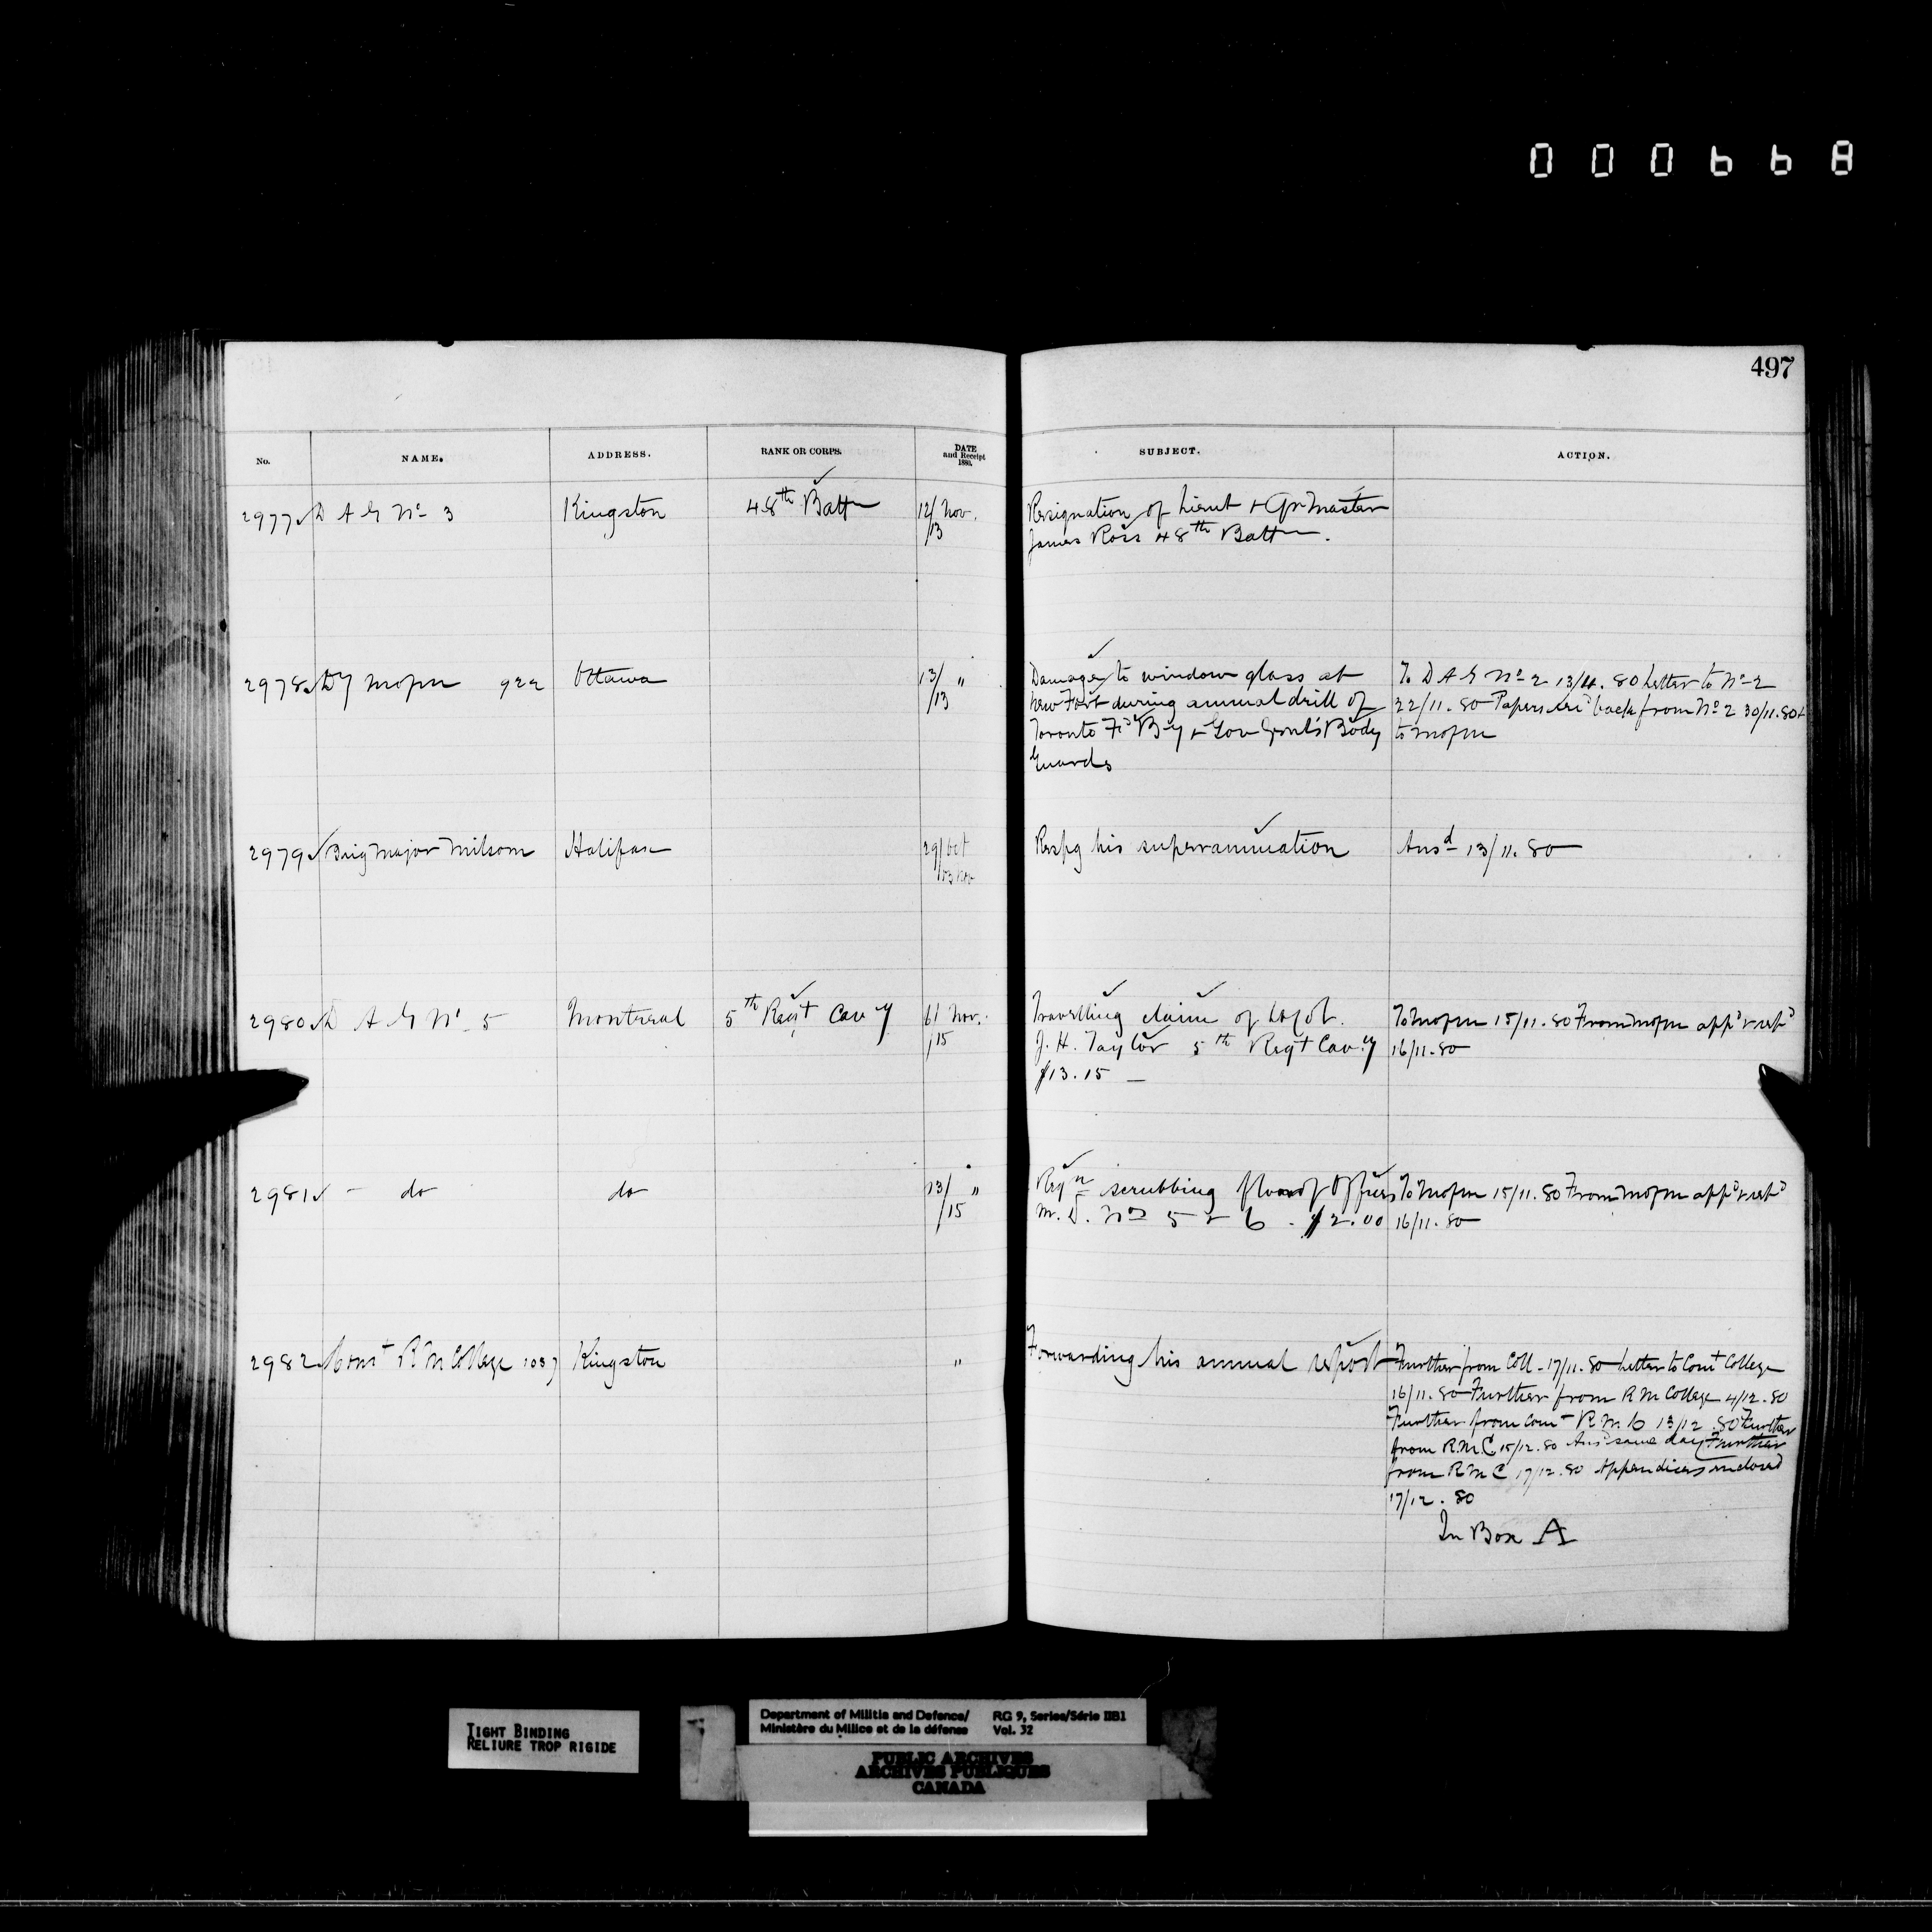 000668
497
No. NAME. ADDRESS. RANK OR CORPS. DATE and Receipt 1880. SUBJECT. ACTION.
2977 D A G No 3 Kingston 48th Battn 12/ Nov. Resignation of Lieut + Qr Master
/13 James Ross 48th Battn.
2978 Dy Mofm 922 Ottawa 13/ " Damage to window glass at To D A G No 2 13/11.80 Letter to No 2
/13 New Fort during annual drill of 22/11.80 Papers back from No 2 30/11.80 +
Toronto Fd By + Gov Genl's Body to mofm
Guards
2979 Brig Major Milsom Halifax 29/Oct Respg his superannuation Ansd 13/11.80
/13 Nov
2980 D A G No 5 Montreal 5th Regt Cavy Nov. Travelling claim of To Mofm 15/11.80 From Mofm appd + retd
/15 J. H. Taylor 5th Regt Cavy 16/11.80
$13.15 —
2981 - do do 13/ " Reqn scrubbing floor of Offices To Mofm 15/11.80 From Mofm appd + retd
/15 M. D. Nos 5 & 6. $2.00 16/11.80
2982 Comt R M College 1037 Kingston " Forwarding his annual report Further from Coll - 17/11.80 Letter to Comt College
16/11.80 Further from R M College 4/12.80
Further from Comt R. M. C 13/12.80 Further
from R.M.C. 15/12.80 Ansd same day Further
from R M C 17/12.80 Appendices enclosed
17/12.80
In Box A
TIGHT BINDING
RELIURE TROP RIGIDE
Department of Militia and Defence/ RG 9, Series/Série IIB1
Ministère du Milice et de la défense Vol. 32
PUBLIC ARCHIVES
ARCHIVES PUBLIQUES
CANADA